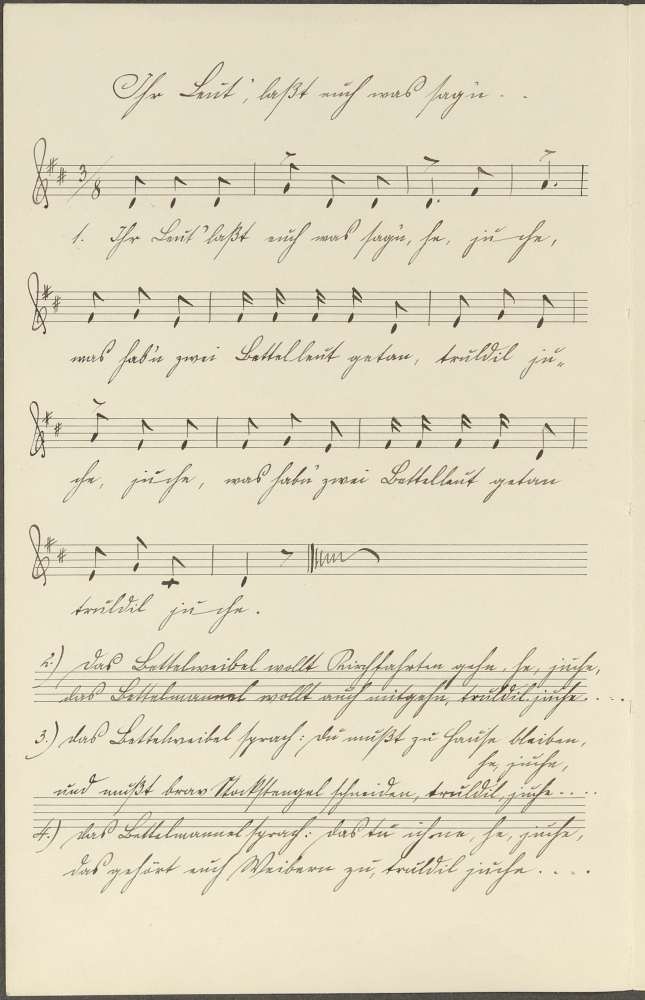 Ihr Leut', laßt euch was sag'n . .
3/8
1. Ihr Leut' laßt euch was sag'n, he, ju che,
was hab'n zwei Bettelleut getan, truldil ju-
che, juche, was hab'n zwei Bettelleut getan
truldil ju che.
2.) Das Bettelweibel wollt Kirchfahrten gehn, he, juche,
das Bettelmannel wollt auch mitgehn, truldil juche . . . .
3.) das Bettelweibel sprach: du mußt zu Hause bleiben,
he, juche,
und mußt brav Stockstengel schneiden, truldil, juche . . . .
4.) das Bettelmannel sprach: das tu ich ne, he, juche,
das gehört euch Weibern zu, truldil juche . . . .